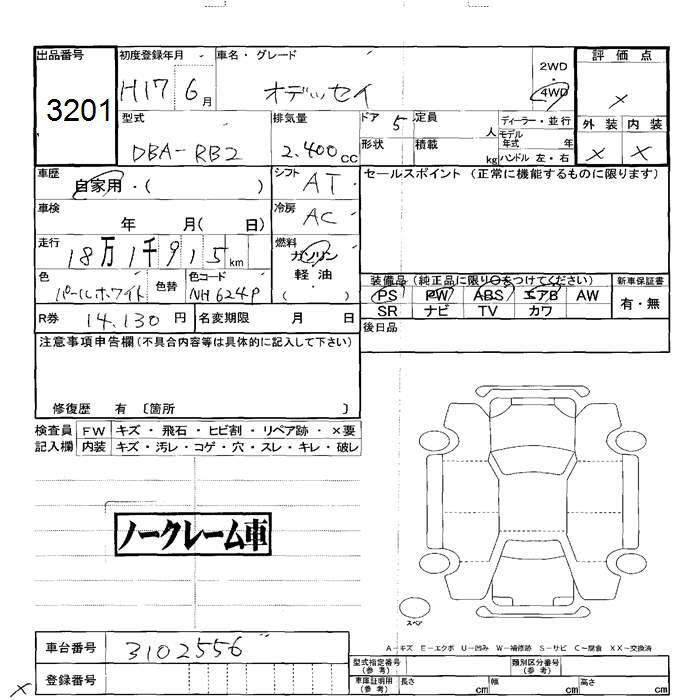 出品番号 初度登録年月 車名・グレード 2WD 評価点
3201 H17 6月 オデッセイ 4WD ×
型式 排気量 ドア 5 定員 人 ディーラー・並行 外装 内装
DBA-RB2 2.400cc 形状 積載 kg モデル年式 年 ハンドル 左・右 × ×
車歴 自家用・( ) シフト AT セールスポイント (正常に機能するものに限ります)
車検 年 月( 日) 冷房 AC
走行 18万1千915km 燃料 ガソリン
軽油
( )
色 パールホワイト 色替 色コード NH624P
装備品 (純正品に限り○をつけてください) 新車保証書
PS PW ABS エアB AW 有・無
SR ナビ TV カワ
R券 14,130円 名変期限 月 日 後日品
注意事項申告欄(不具合内容等は具体的に記入して下さい)
修復歴 有 〔箇所 〕
検査員 FW キズ・飛石・ヒビ割・リペア跡・×要
記入欄 内装 キズ・汚レ・コゲ・穴・スレ・キレ・破レ
ノークレーム車
スペア
A-キズ E-エクボ U-凹み W-補修跡 S-サビ C-腐食 XX-交換済
車台番号 3102556
型式指定番号(参考) 類別区分番号(参考)
× 登録番号 車庫証明用(参考) 長さ cm 幅 cm 高さ cm